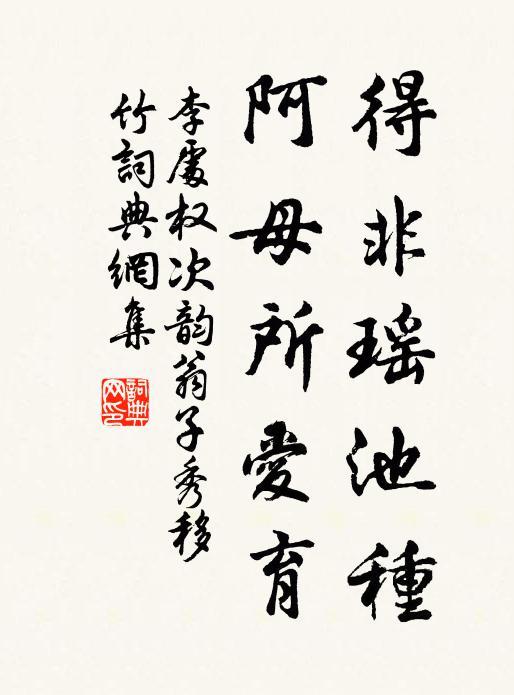 得非瑤池種
阿母所愛育
李處权次韵翁子秀移
竹詞典網集
詞典網印